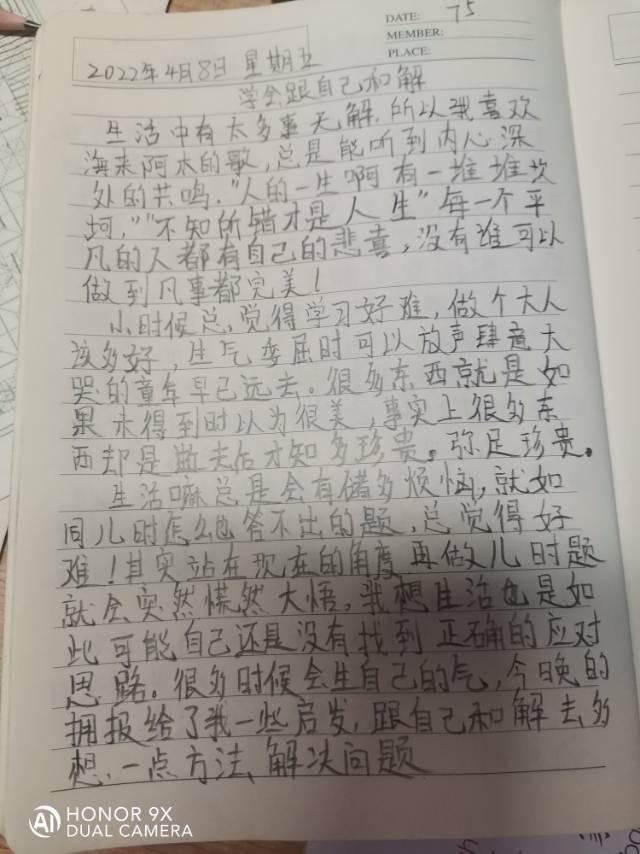 DATE: 75
MEMBER:
PLACE:
2022年4月8日 星期五
学会跟自己和解
生活中有太多事无解,所以我喜欢
海来阿木的歌,总是能听到内心深
处的共鸣,"人的一生啊有一堆堆坎
坷,""不知所错才是人生"每一个平
凡的人都有自己的悲喜,没有谁可以
做到凡事都完美!
小时候总觉得学习好难,做个大人
该多好,生气委屈时可以放声肆意大
哭的童年早已远去。很多东西就是如
果未得到时以为很美,事实上很多东
西却是逝去后才知多珍贵。弥足珍贵。
生活嘛总是会有储多烦恼,就如
同儿时怎么也答不出的题,总觉得好
难!其实站在现在的角度再做儿时题
就会突然慌然大悟,我想生活也是如
此可能自己还是没有找到正确的应对
思路。很多时候会生自己的气,今晚的
拥报给了我一些启发,跟自己和解去多
想一点方法、解决问题
HONOR 9X
DUAL CAMERA